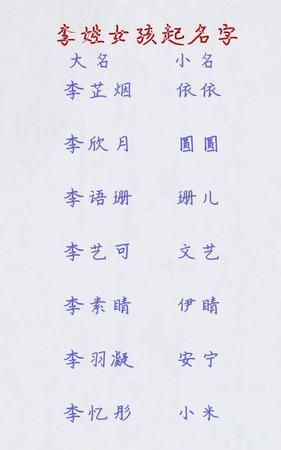 李姓女孩起名字
大名 小名
李芷烟 依依
李欣月 圆圆
李语珊 珊儿
李艺可 文艺
李素晴 伊晴
李羽凝 安宁
李忆彤 小米